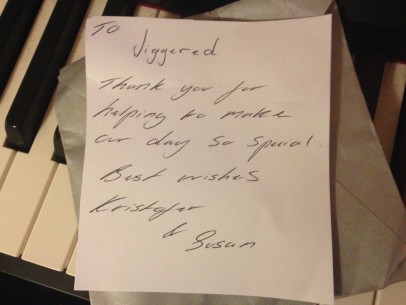 To
Jiggered
Thank you for
helping to make
our day so special.
Best wishes
Kristofer
&
Susan